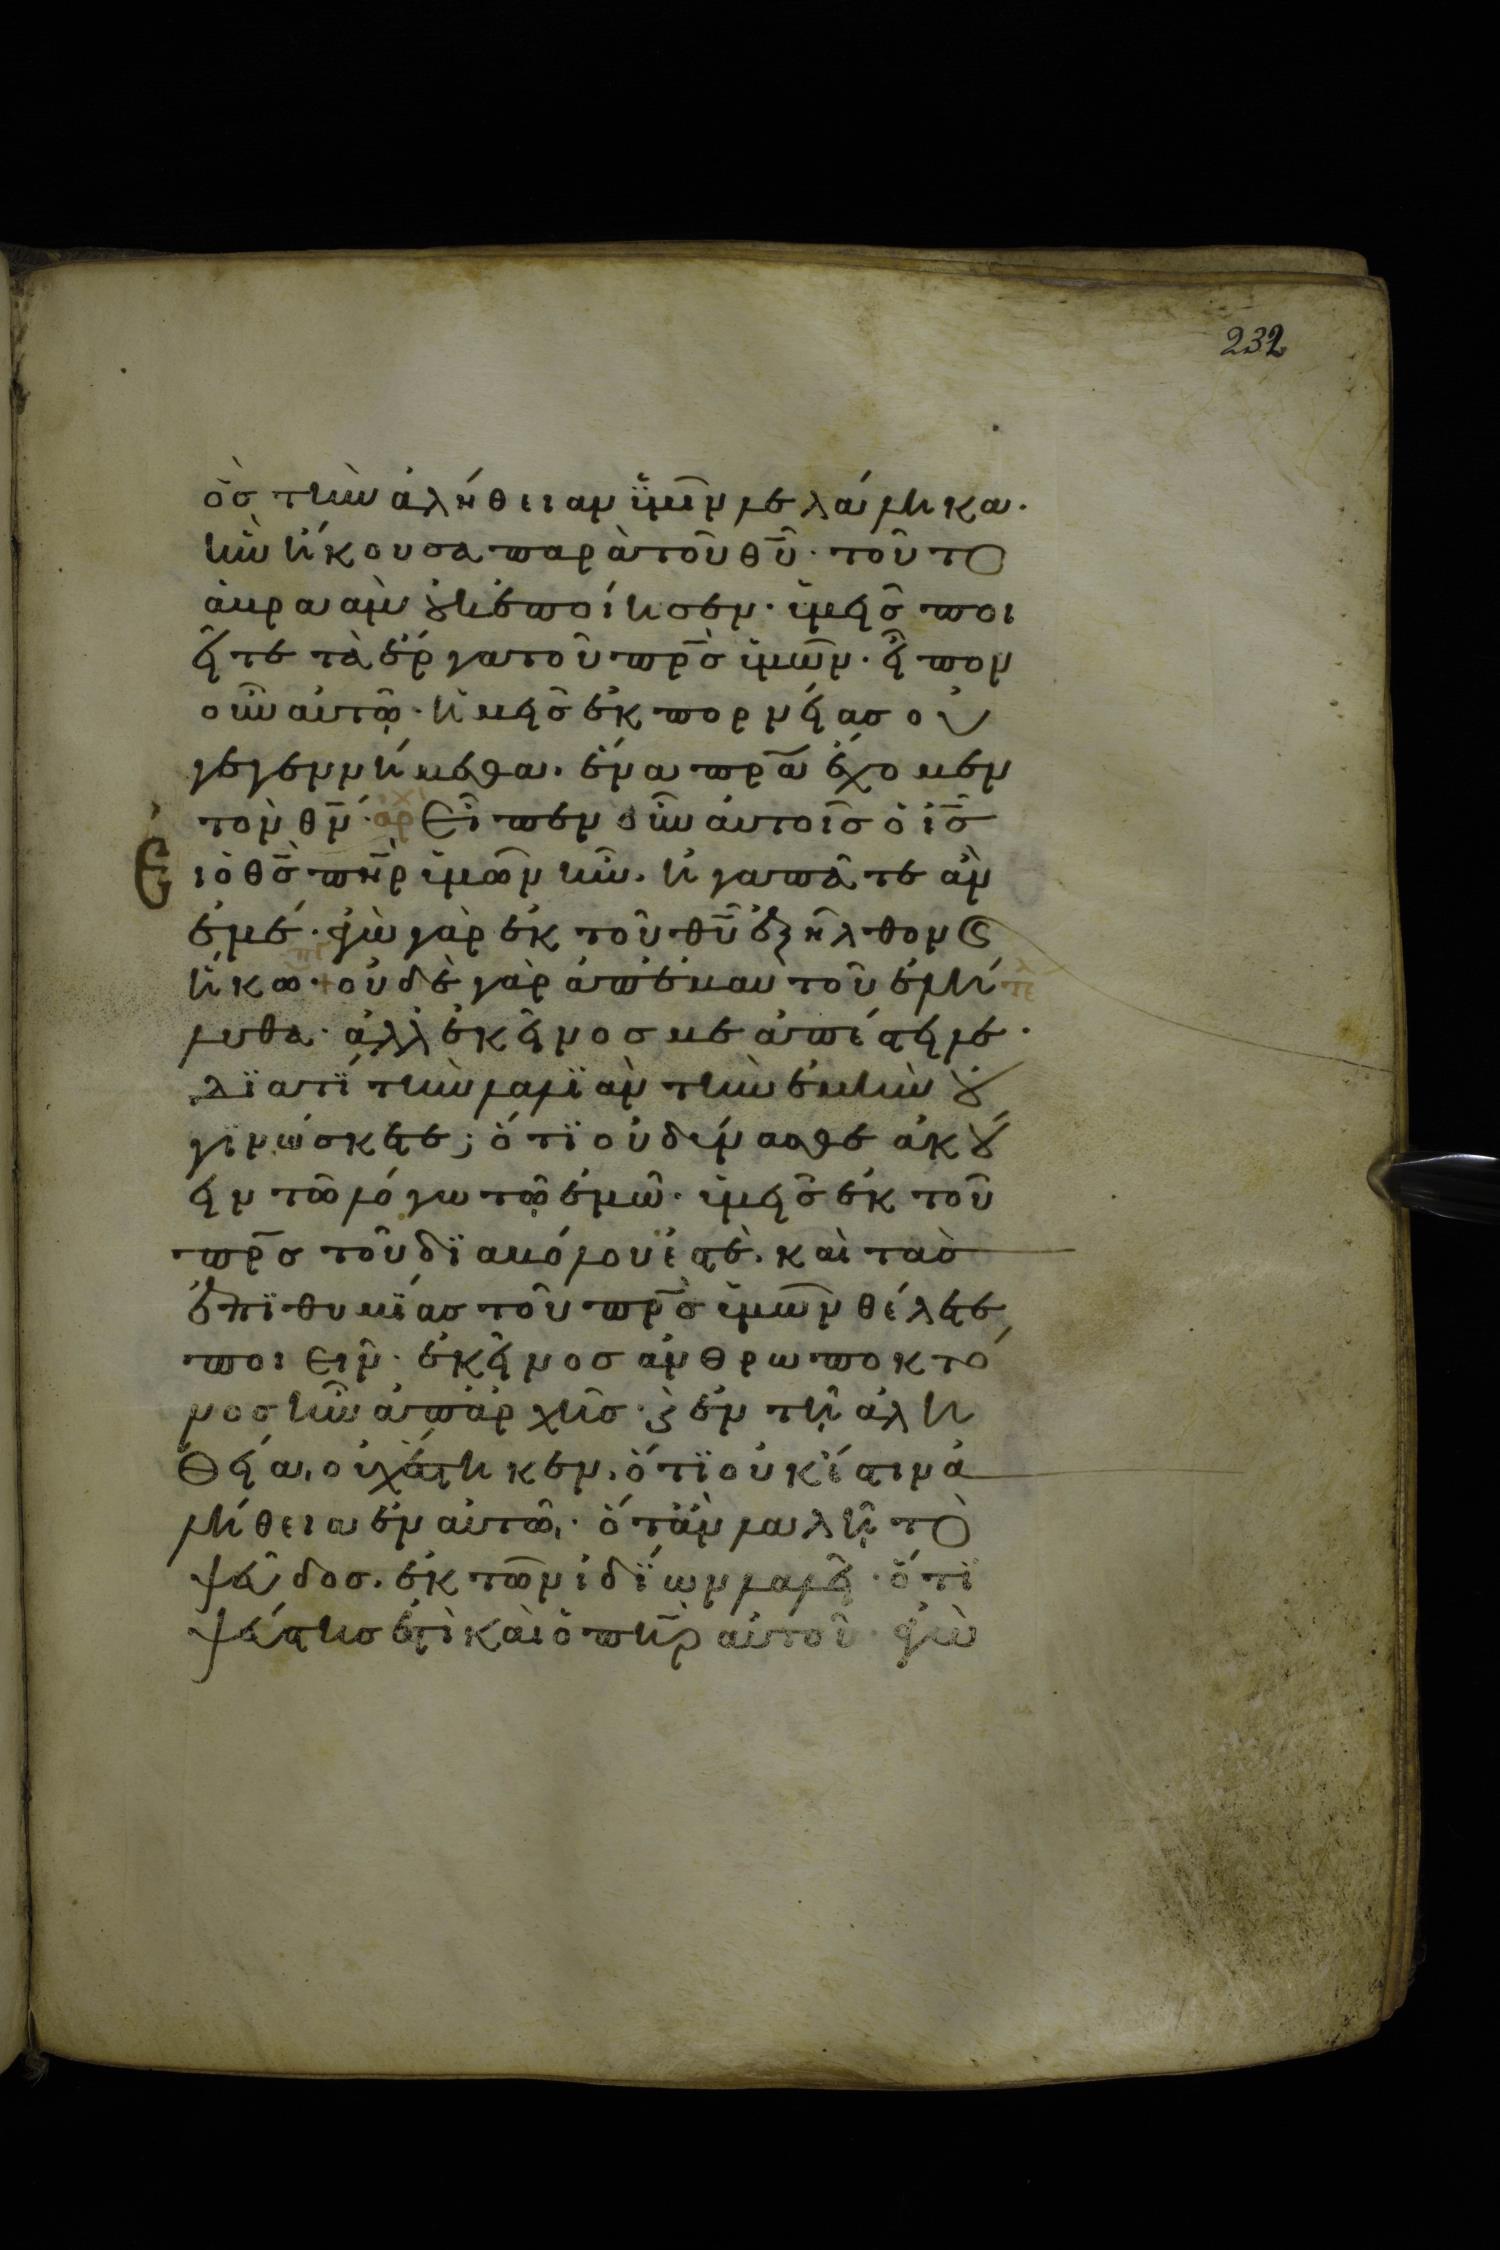 232
ὃσ τὴν ἀλήθειαν ὑμῖν λελάληκα·
ἣν ἤκουσα παρὰ τοῦ θῡ· τοῦτο
ἀβρααμ οὐκ ἐποίησεν· ὑμεῖσ ποι
εῖτε τὰ ἔργα τοῦ πρ̄σ ὑμῶν· εἶπον
οὖν αὐτῶ· ἡμεῖσ ἐκ πορνείασ οὐ
γεγεννήμεθα· ἕνα πρ̄α ἔχομεν
τὸν θν̄· ἀρχ Εἶπεν οὖν αὐτοῖσ ὁ ις̄
Ε ἰ ὁ θσ̄ πη̄ρ ὑμῶν ἦν· ἠγαπᾶτε ἂν
ἐμέ· ἐγὼ γὰρ ἐκ τοῦ θῡ ἐξῆλθον καὶ
ἥκω· οὐδὲ γὰρ ἀπ' ἐμαυτοῦ ἐλή
λυθα· ἀλλ' ἐκεῖνοσ με ἀπέστειλε·
διατί τὴν λαλιὰν τὴν ἐμὴν οὐ
γινώσκετε; ὅτι οὐ δύνασθε ἀκού
ειν τὸν λόγων τῶ ἐμῶ· ὑμεῖσ ἐκ τοῦ
πρ̄σ τοῦ διαβόλου ἐστέ· καὶ τὰσ
ἐπιθυμίασ τοῦ πρ̄σ ὑμῶν θέλετε
ποιεῖν· ἐκεῖνοσ ἀνθρωποκτό
νοσ ἦν ἀπ' ἀρχῆσ· καὶ ἐν τῆ ἀλη
θεία οὐχ ἕστηκεν· ὅτι οὐκ ἔστιν ἀ
λήθεια ἐν αὐτῶ· ὅταν λαλῆ τὸ
ψεῦδοσ· ἐκ τῶν ἰδίων λαλεῖ· ὅτι
ψεύστησ ἐστὶ καὶ ὁ πη̄ρ αὐτοῦ· ἐγὼ